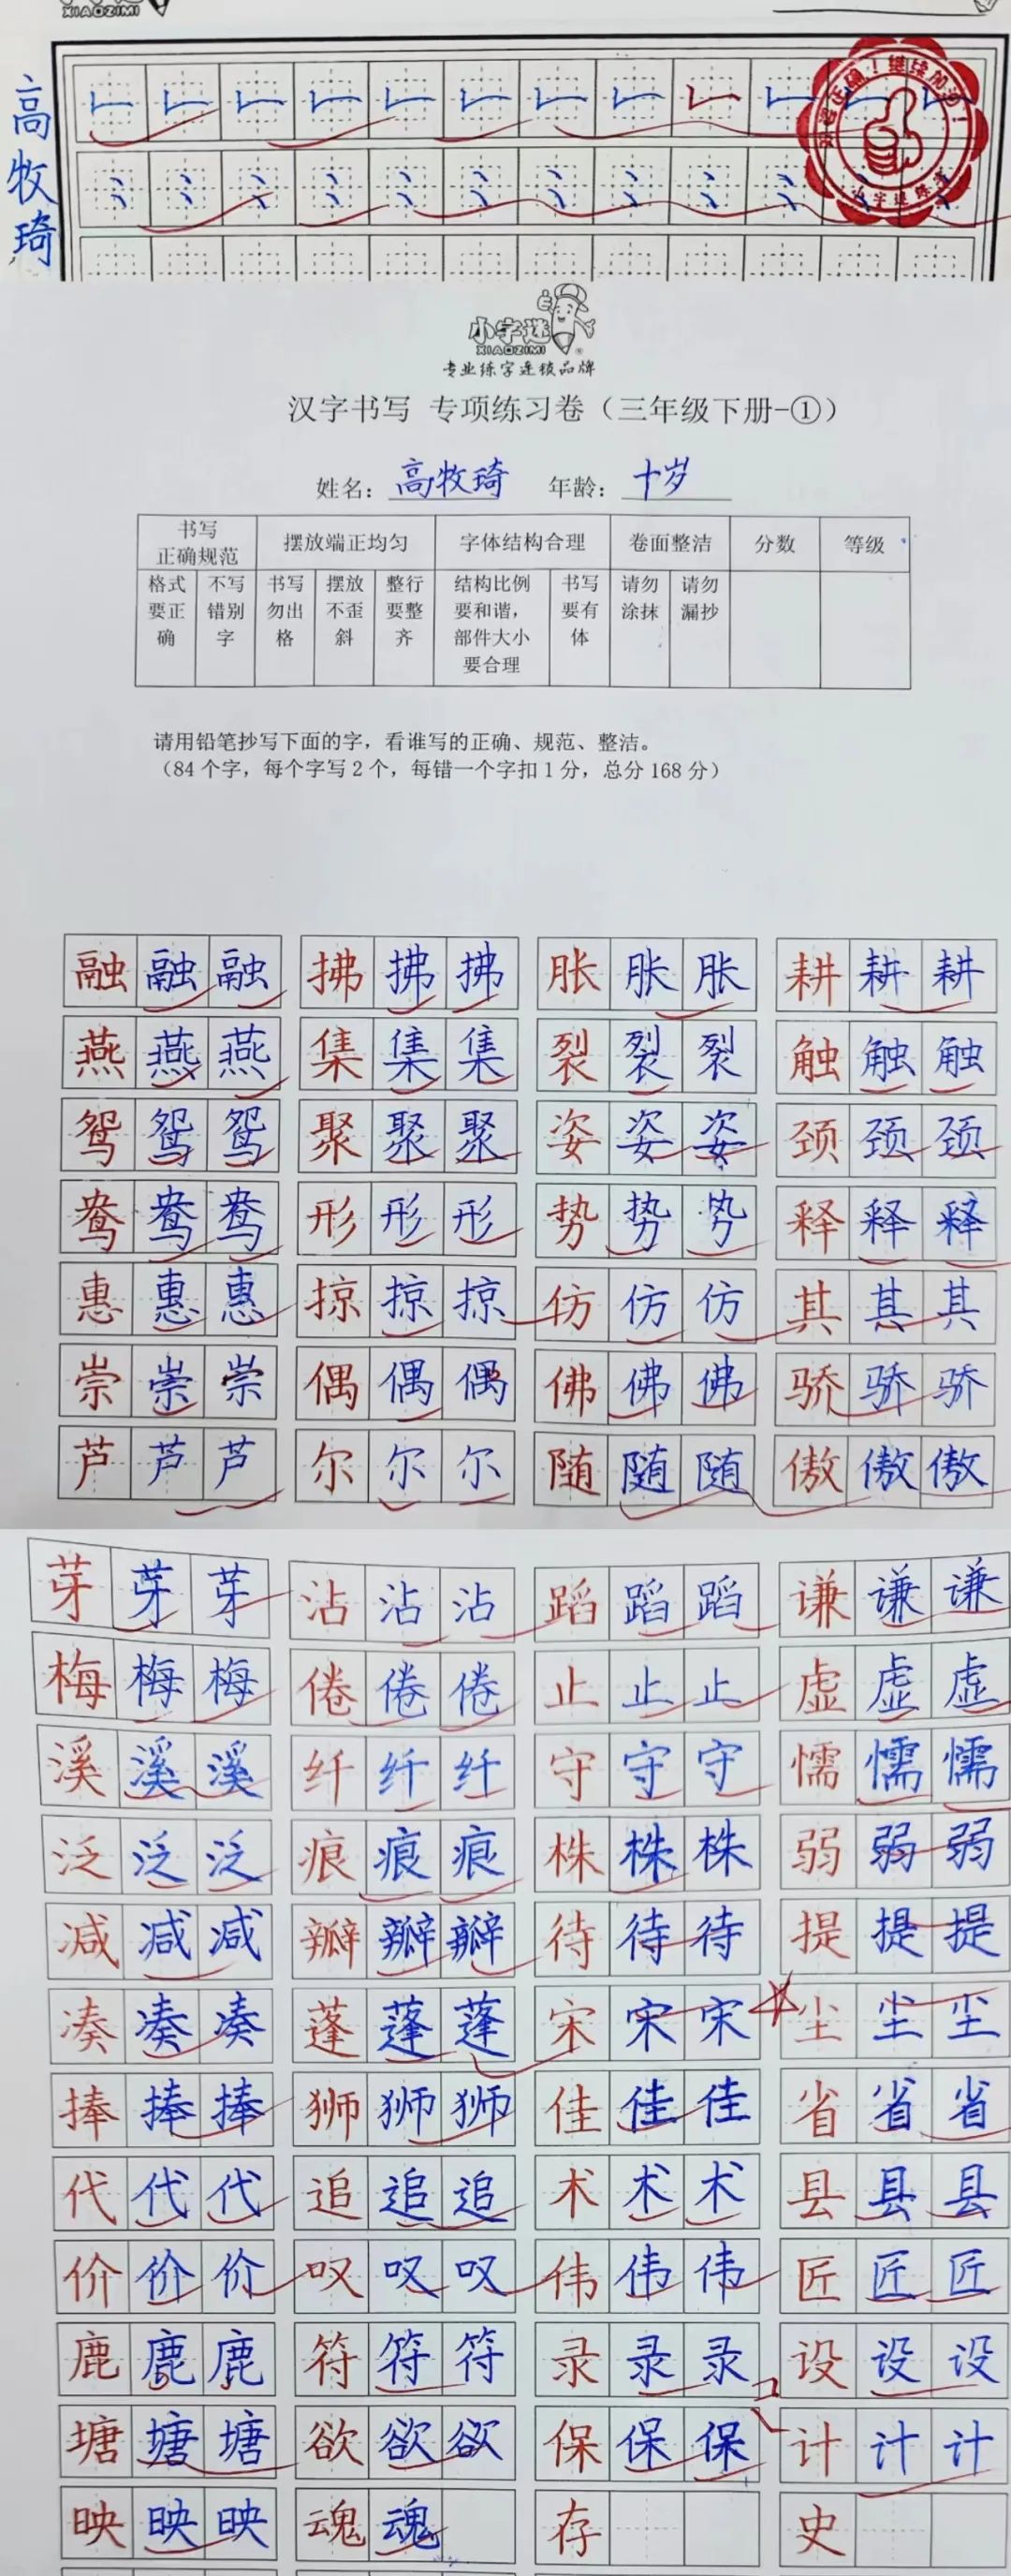 XIAOZIMI
高牧琦
小字迷
XIAOZIMI
专业练字连锁品牌
汉字书写 专项练习卷（三年级下册-①）
姓名：高牧琦 年龄：十岁
书写正确规范 摆放端正均匀 字体结构合理 卷面整洁 分数 等级
格式要正确 不写错别字 书写勿出格 摆放不歪斜 整行要整齐 结构比例要和谐，部件大小要合理 书写要有体 请勿涂抹 请勿漏抄
请用铅笔抄写下面的字，看谁写的正确、规范、整洁。
（84 个字，每个字写 2 个，每错一个字扣 1 分，总分 168 分）
融融融 拂拂拂 胀胀胀 耕耕耕
燕燕燕 集集集 裂裂裂 触触触
鸳鸳鸳 聚聚聚 姿姿姿 颈颈颈
鸯鸯鸯 形形形 势势势 释释释
惠惠惠 掠掠掠 仿仿仿 其其其
崇崇崇 偶偶偶 佛佛佛 骄骄骄
芦芦芦 尔尔尔 随随随 傲傲傲
芽芽芽 沾沾沾 蹈蹈蹈 谦谦谦
梅梅梅 倦倦倦 止止止 虚虚虚
溪溪溪 纤纤纤 守守守 懦懦懦
泛泛泛 痕痕痕 株株株 弱弱弱
减减减 瓣瓣瓣 待待待 提提提
凑凑凑 蓬蓬蓬 宋宋宋 尘尘尘
捧捧捧 狮狮狮 佳佳佳 省省省
代代代 追追追 术术术 县县县
价价价 叹叹叹 伟伟伟 匠匠匠
鹿鹿鹿 符符符 录录录 设设设
塘塘塘 欲欲欲 保保保 计计计
映映映 魂魂 存 史